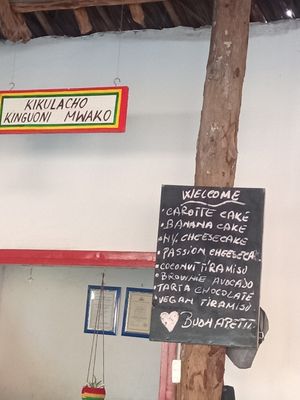 KIKULACHO
KINGUONI MWAKO
WELCOME
• CAROTTE CAKE
• BANANA CAKE
• NY. CHEESECAKE
• PASSION CHEESECA.
• COCONUT TIRAMISU
• BROWNIE AVOCADO
TARTA CHOCOLATE
• VEGAN TIRAMISU
BUON APETIT